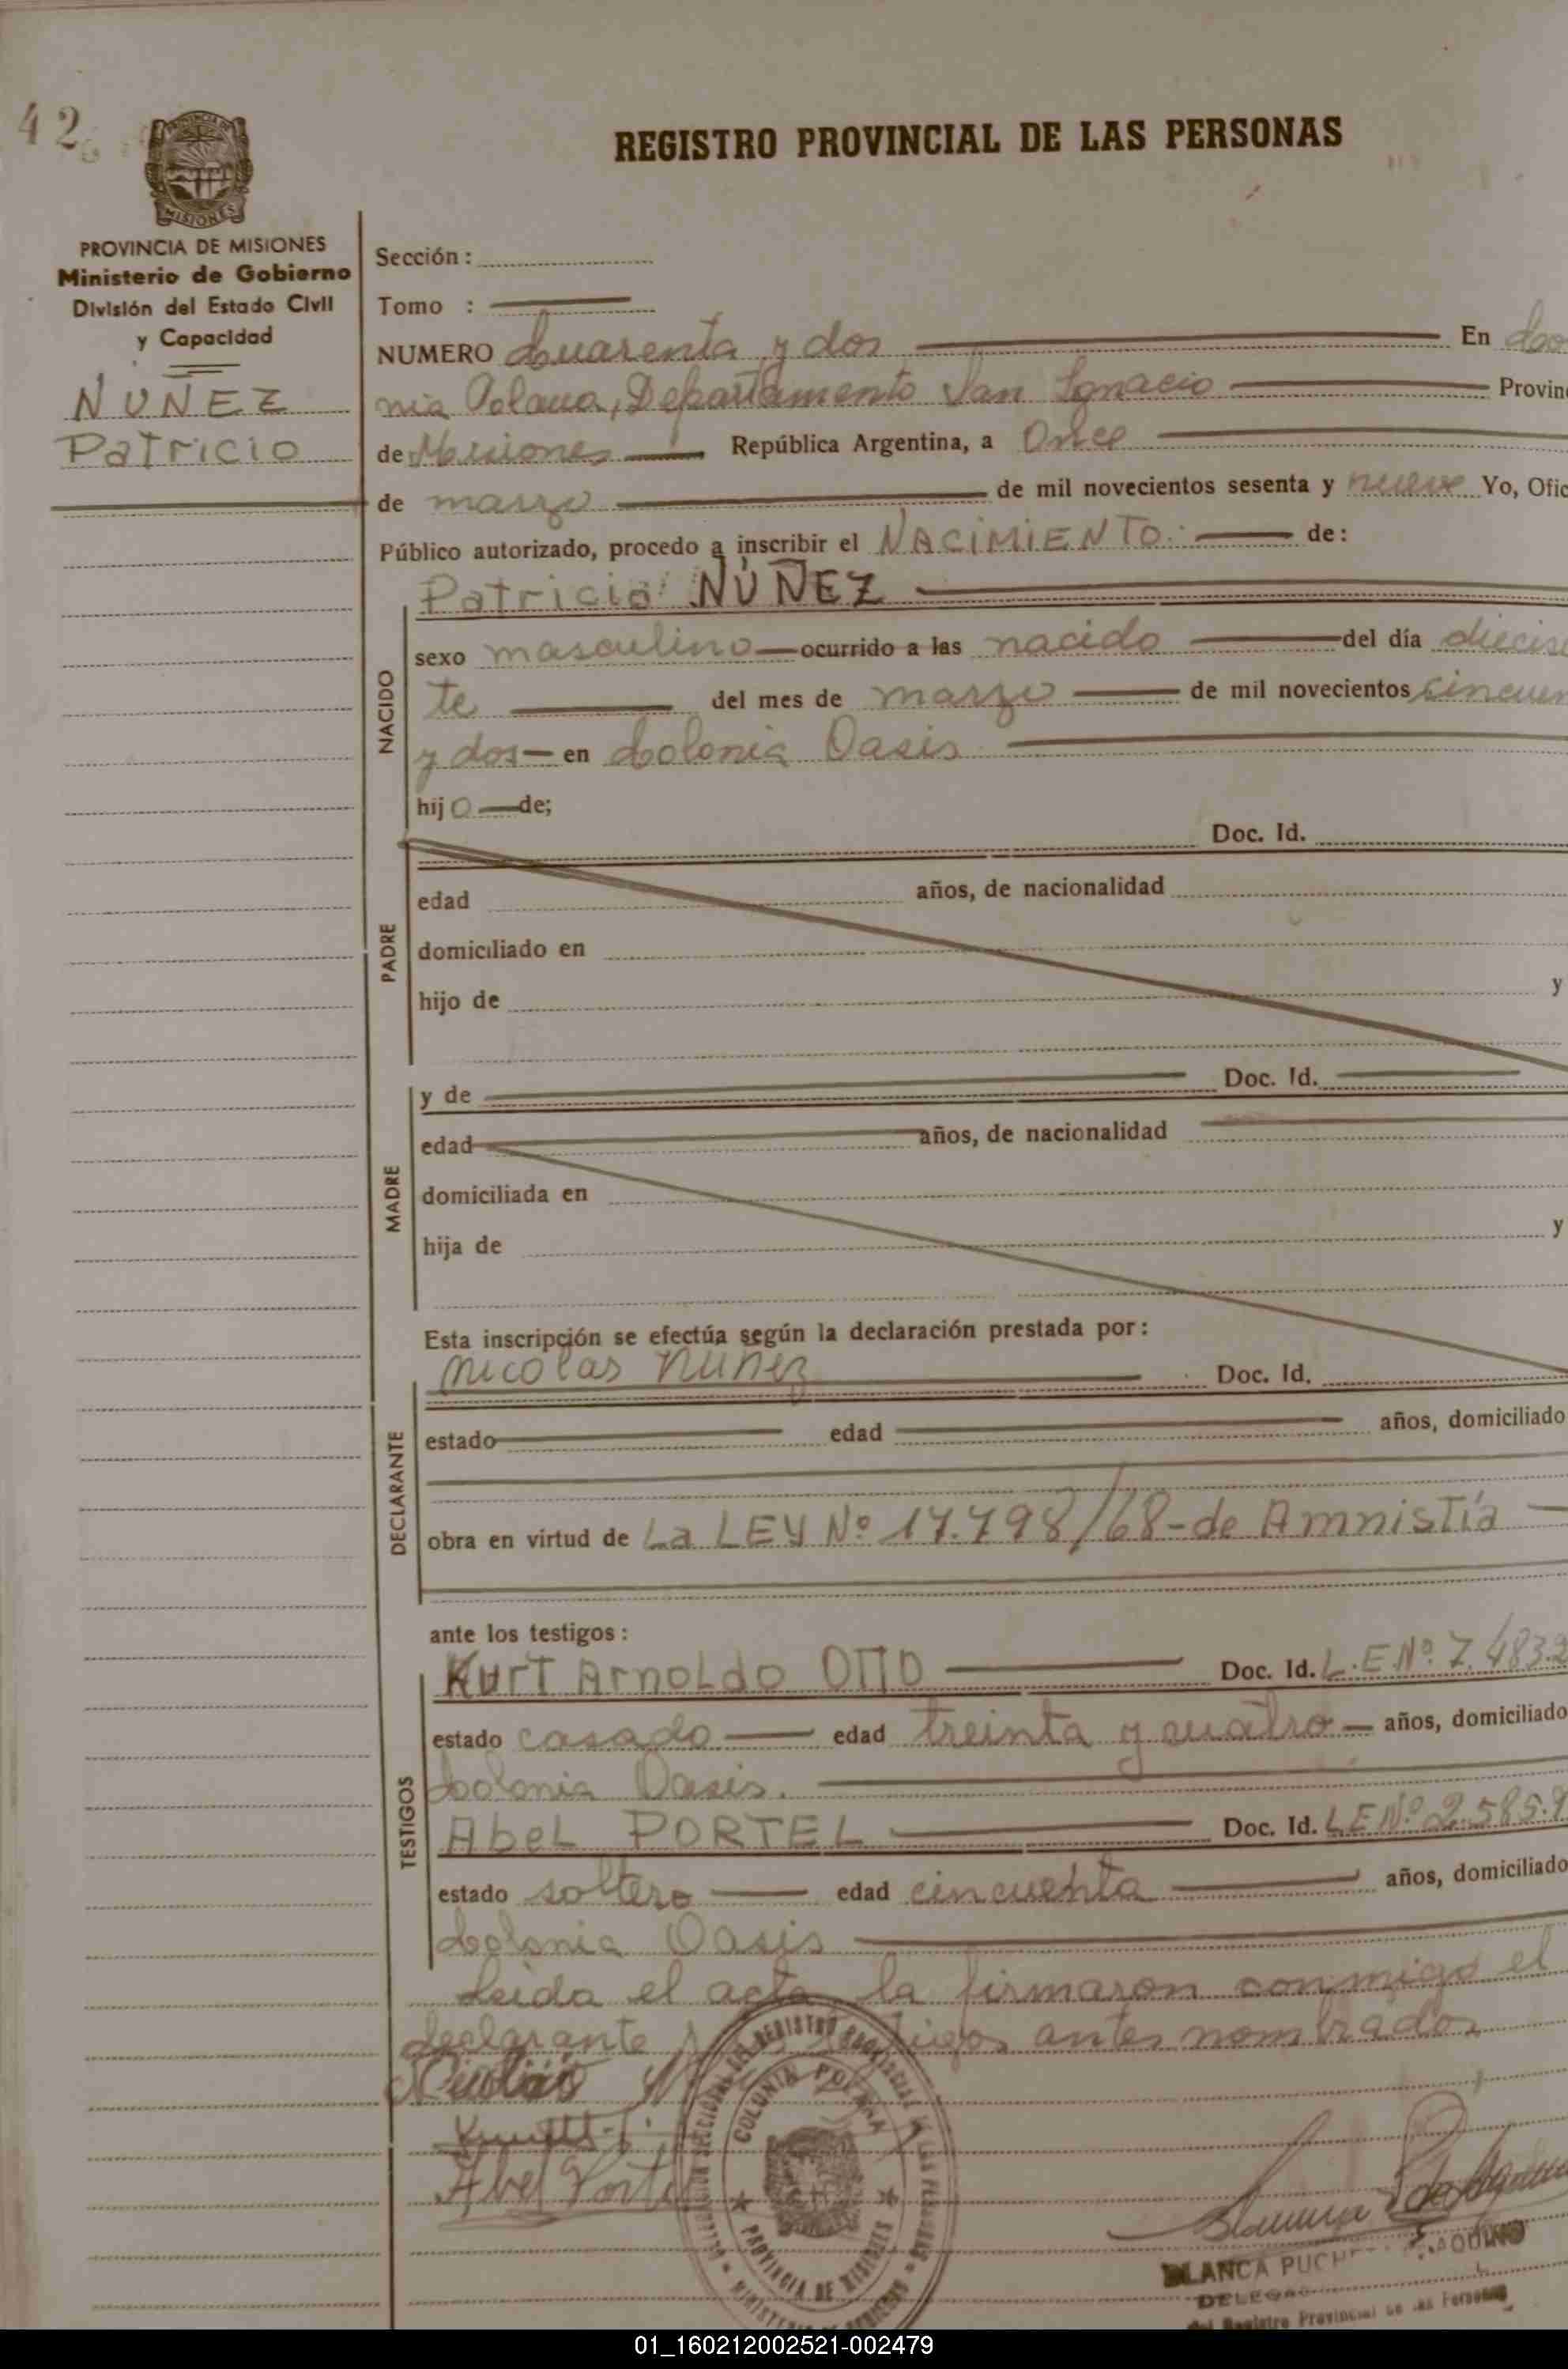 42
REGISTRO PROVINCIAL DE LAS PERSONAS
PROVINCIA DE MISIONES
Ministerio de Gobierno
División del Estado Civil
y Capacidad
NUÑEZ
Patricio
Sección :
Tomo :
NUMERO Cuarenta y dos En Colo
nia Polana, Departamento San Ignacio Provin
de Misiones República Argentina, a Once
de marzo de mil novecientos sesenta y nueve Yo, Ofic
Público autorizado, procedo a inscribir el NACIMIENTO. de:
NACIDO
Patricio NUÑEZ
sexo masculino ocurrido a las nacido del día diecisi
te del mes de marzo de mil novecientos cincuen
y dos en Colonia Oasis
hijo de;
PADRE
Doc. Id.
edad años, de nacionalidad
domiciliado en
hijo de y
MADRE
y de Doc. Id.
edad años, de nacionalidad
domiciliada en
hija de y
Esta inscripción se efectúa según la declaración prestada por:
DECLARANTE
Nicolas Nuñez Doc. Id.
estado edad años, domiciliado
obra en virtud de La LEY Nº 17.798/68-de Amnistía
ante los testigos:
TESTIGOS
Kurt Arnoldo OTTO Doc. Id. L.E.Nº 7.483.2
estado casado edad treinta y cuatro años, domiciliado
Colonia Oasis.
Abel PORTEL Doc. Id. L.E Nº 2.585.9
estado soltero edad cincuenta años, domiciliado
Colonia Oasis
Leida el acta, la firmaron conmigo el
declarante antes nombrados
Abel Porte
COLONIA POLANA
PROVINCIA DE MISIONES
BLANCA AQUINO
del Registro Provincial de las Personas
01_160212002521-002479